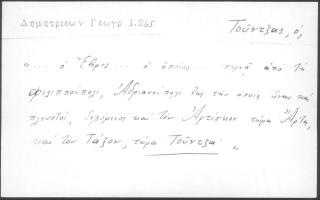 Δημητρίεων Γεωγρ 1.265
Τούντζας, ὁ,
"... ὁ Ἕβρος ... ὁ ὁποῖος ... περνᾷ ἀπό τὰ
φιλιππούπολι, Ἀδριανούπολι ἕως τὴν ὁποίαν εἶναι καὶ
πλευστός, δεχόμενος καὶ τὸν Ἀρτίσκον τώρα Ἄρτα,
καὶ τὸν Τάξον, τώρα Τούντζα "